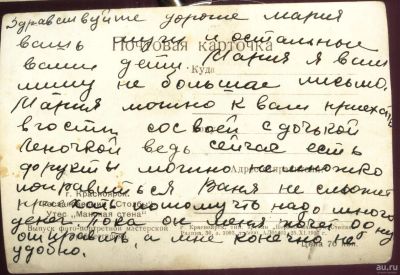 Здравствуйте дорогие мария
ваш муж и остальные
Почтовая карточка
ваши дети. Мария я вам
Куда
пишу не большое письмо.
Мария можно к вам приехать
в гости со своей дочькой
Леночкой ведь сейчас есть
фрукты можно немножко
поправиться Ваня не сможет
г. Красноярск.
Столбы
приехать потомучто надо много
Утес „Манская стена“
денег. Пока он меня хочет одну
Выпуск фото-портретной мастерской
отправить, а мне конечно не
удобно.
70 коп.
au.ru